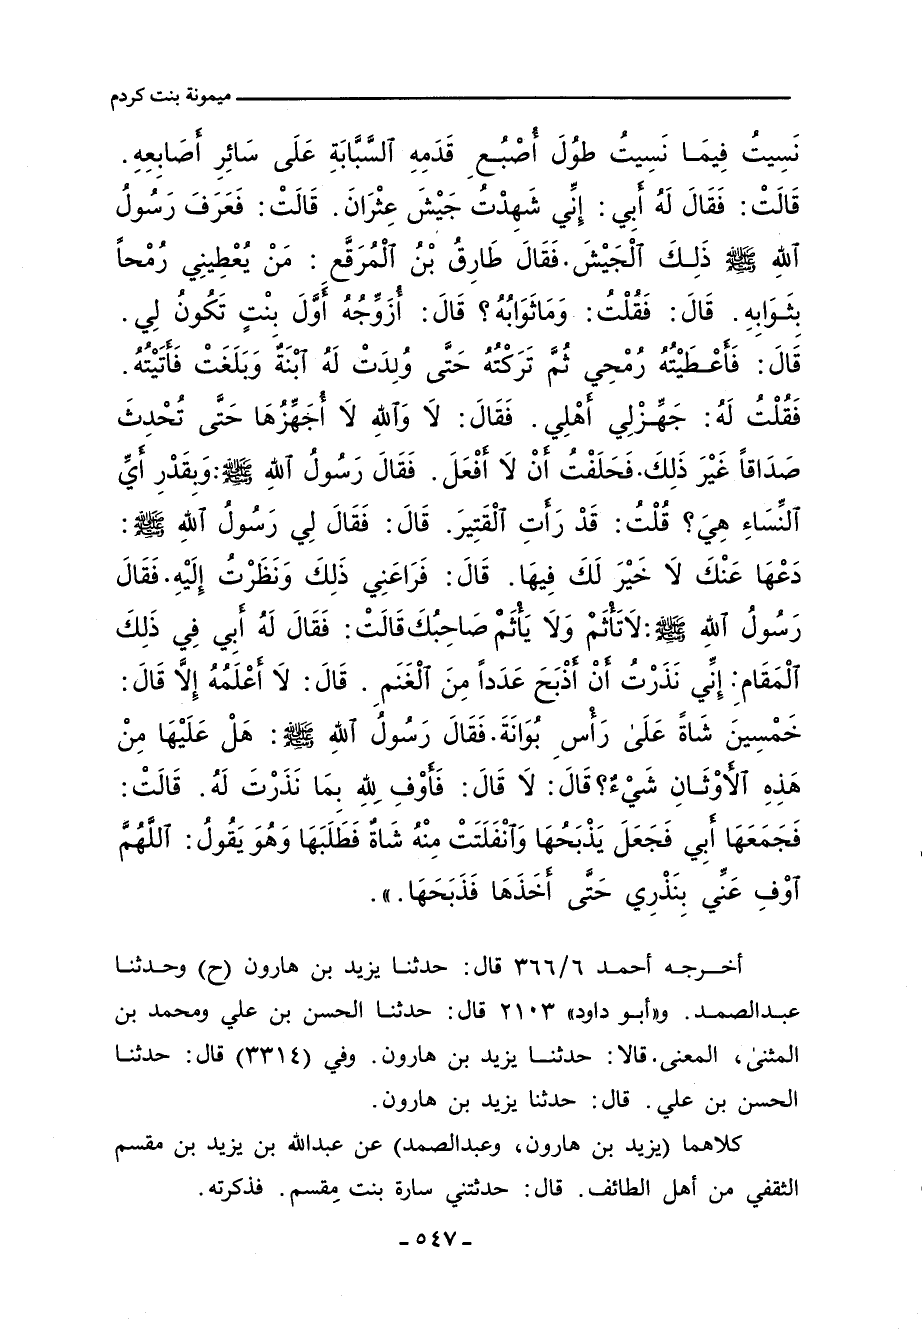 ميمونة بنت كردم
نَسِيتُ فِيمَا نَسِيتُ طُولَ أُصْبُعِ قَدَمِهِ ٱلسَّبَّابَةِ عَلَى سَائِرِ أَصَابِعِهِ.
قَالَتْ: فَقَالَ لَهُ أَبِي: إِنِّي شَهِدْتُ جَيْشَ عِثْرَانَ. قَالَتْ: فَعَرَفَ رَسُولُ
ٱللهِ ﷺ ذَلِكَ ٱلْجَيْشَ. فَقَالَ طَارِقُ بْنُ ٱلْمُرَقَّعِ: مَنْ يُعْطِينِي رُمْحاً
بِثَوَابِهِ. قَالَ: فَقُلْتُ: وَمَاثَوَابُهُ؟ قَالَ: أُزَوِّجُهُ أَوَّلَ بِنْتٍ تَكُونُ لِي.
قَالَ: فَأَعْطَيْتُهُ رُمْحِي ثُمَّ تَرَكْتُهُ حَتَّى وُلِدَتْ لَهُ ٱبْنَةٌ وَبَلَغَتْ فَأَتَيْتُهُ.
فَقُلْتُ لَهُ: جَهِّزْلِي أَهْلِي. فَقَالَ: لَا وَٱللهِ لَا أُجَهِّزُهَا حَتَّى تُحْدِثَ
صَدَاقاً غَيْرَ ذَلِكَ. فَحَلَفْتُ أَنْ لَا أَفْعَلَ. فَقَالَ رَسُولُ ٱللهِ ﷺ: وَبِقَدْرِ أَيِّ
ٱلنِّسَاءِ هِيَ؟ قُلْتُ: قَدْ رَأَتِ ٱلْقَتِيرَ. قَالَ: فَقَالَ لِي رَسُولُ ٱللهِ ﷺ:
دَعْهَا عَنْكَ لَا خَيْرَ لَكَ فِيهَا. قَالَ: فَرَاعَنِي ذَلِكَ وَنَظَرْتُ إِلَيْهِ. فَقَالَ
رَسُولُ ٱللهِ ﷺ: لَاتَأْثَمْ وَلَا يَأْثَمْ صَاحِبُكَ قَالَتْ: فَقَالَ لَهُ أَبِي فِي ذَلِكَ
ٱلْمَقَامِ: إِنِّي نَذَرْتُ أَنْ أَذْبَحَ عَدَداً مِنَ ٱلْغَنَمِ. قَالَ: لَا أَعْلَمُهُ إِلَّا قَالَ:
خَمْسِينَ شَاةً عَلَىٰ رَأْسِ بُوَانَةَ. فَقَالَ رَسُولُ ٱللهِ ﷺ: هَلْ عَلَيْهَا مِنْ
هَذِهِ ٱلْأَوْثَانِ شَيْءٌ؟ قَالَ: لَا قَالَ: فَأَوْفِ لِلهِ بِمَا نَذَرْتَ لَهُ. قَالَتْ:
فَجَمَعَهَا أَبِي فَجَعَلَ يَذْبَحُهَا وَٱنْفَلَتَتْ مِنْهُ شَاةٌ فَطَلَبَهَا وَهُوَ يَقُولُ: ٱللَّهُمَّ
ٱوْفِ عَنِّي بِنَذْرِي حَتَّى أَخَذَهَا فَذَبَحَهَا.».
أخرجه أحمد ٣٦٦/٦ قال: حدثنا يزيد بن هارون (ح) وحدثنا
عبدالصمد. و«أبو داود» ٢١٠٣ قال: حدثنا الحسن بن علي ومحمد بن
المثنىٰ، المعنى. قالا: حدثنا يزيد بن هارون. وفي (٣٣١٤) قال: حدثنا
الحسن بن علي. قال: حدثنا يزيد بن هارون.
كلاهما (يزيد بن هارون، وعبدالصمد) عن عبدالله بن يزيد بن مقسم
الثقفي من أهل الطائف. قال: حدثتني سارة بنت مِقسم. فذكرته.
- ٥٤٧ -